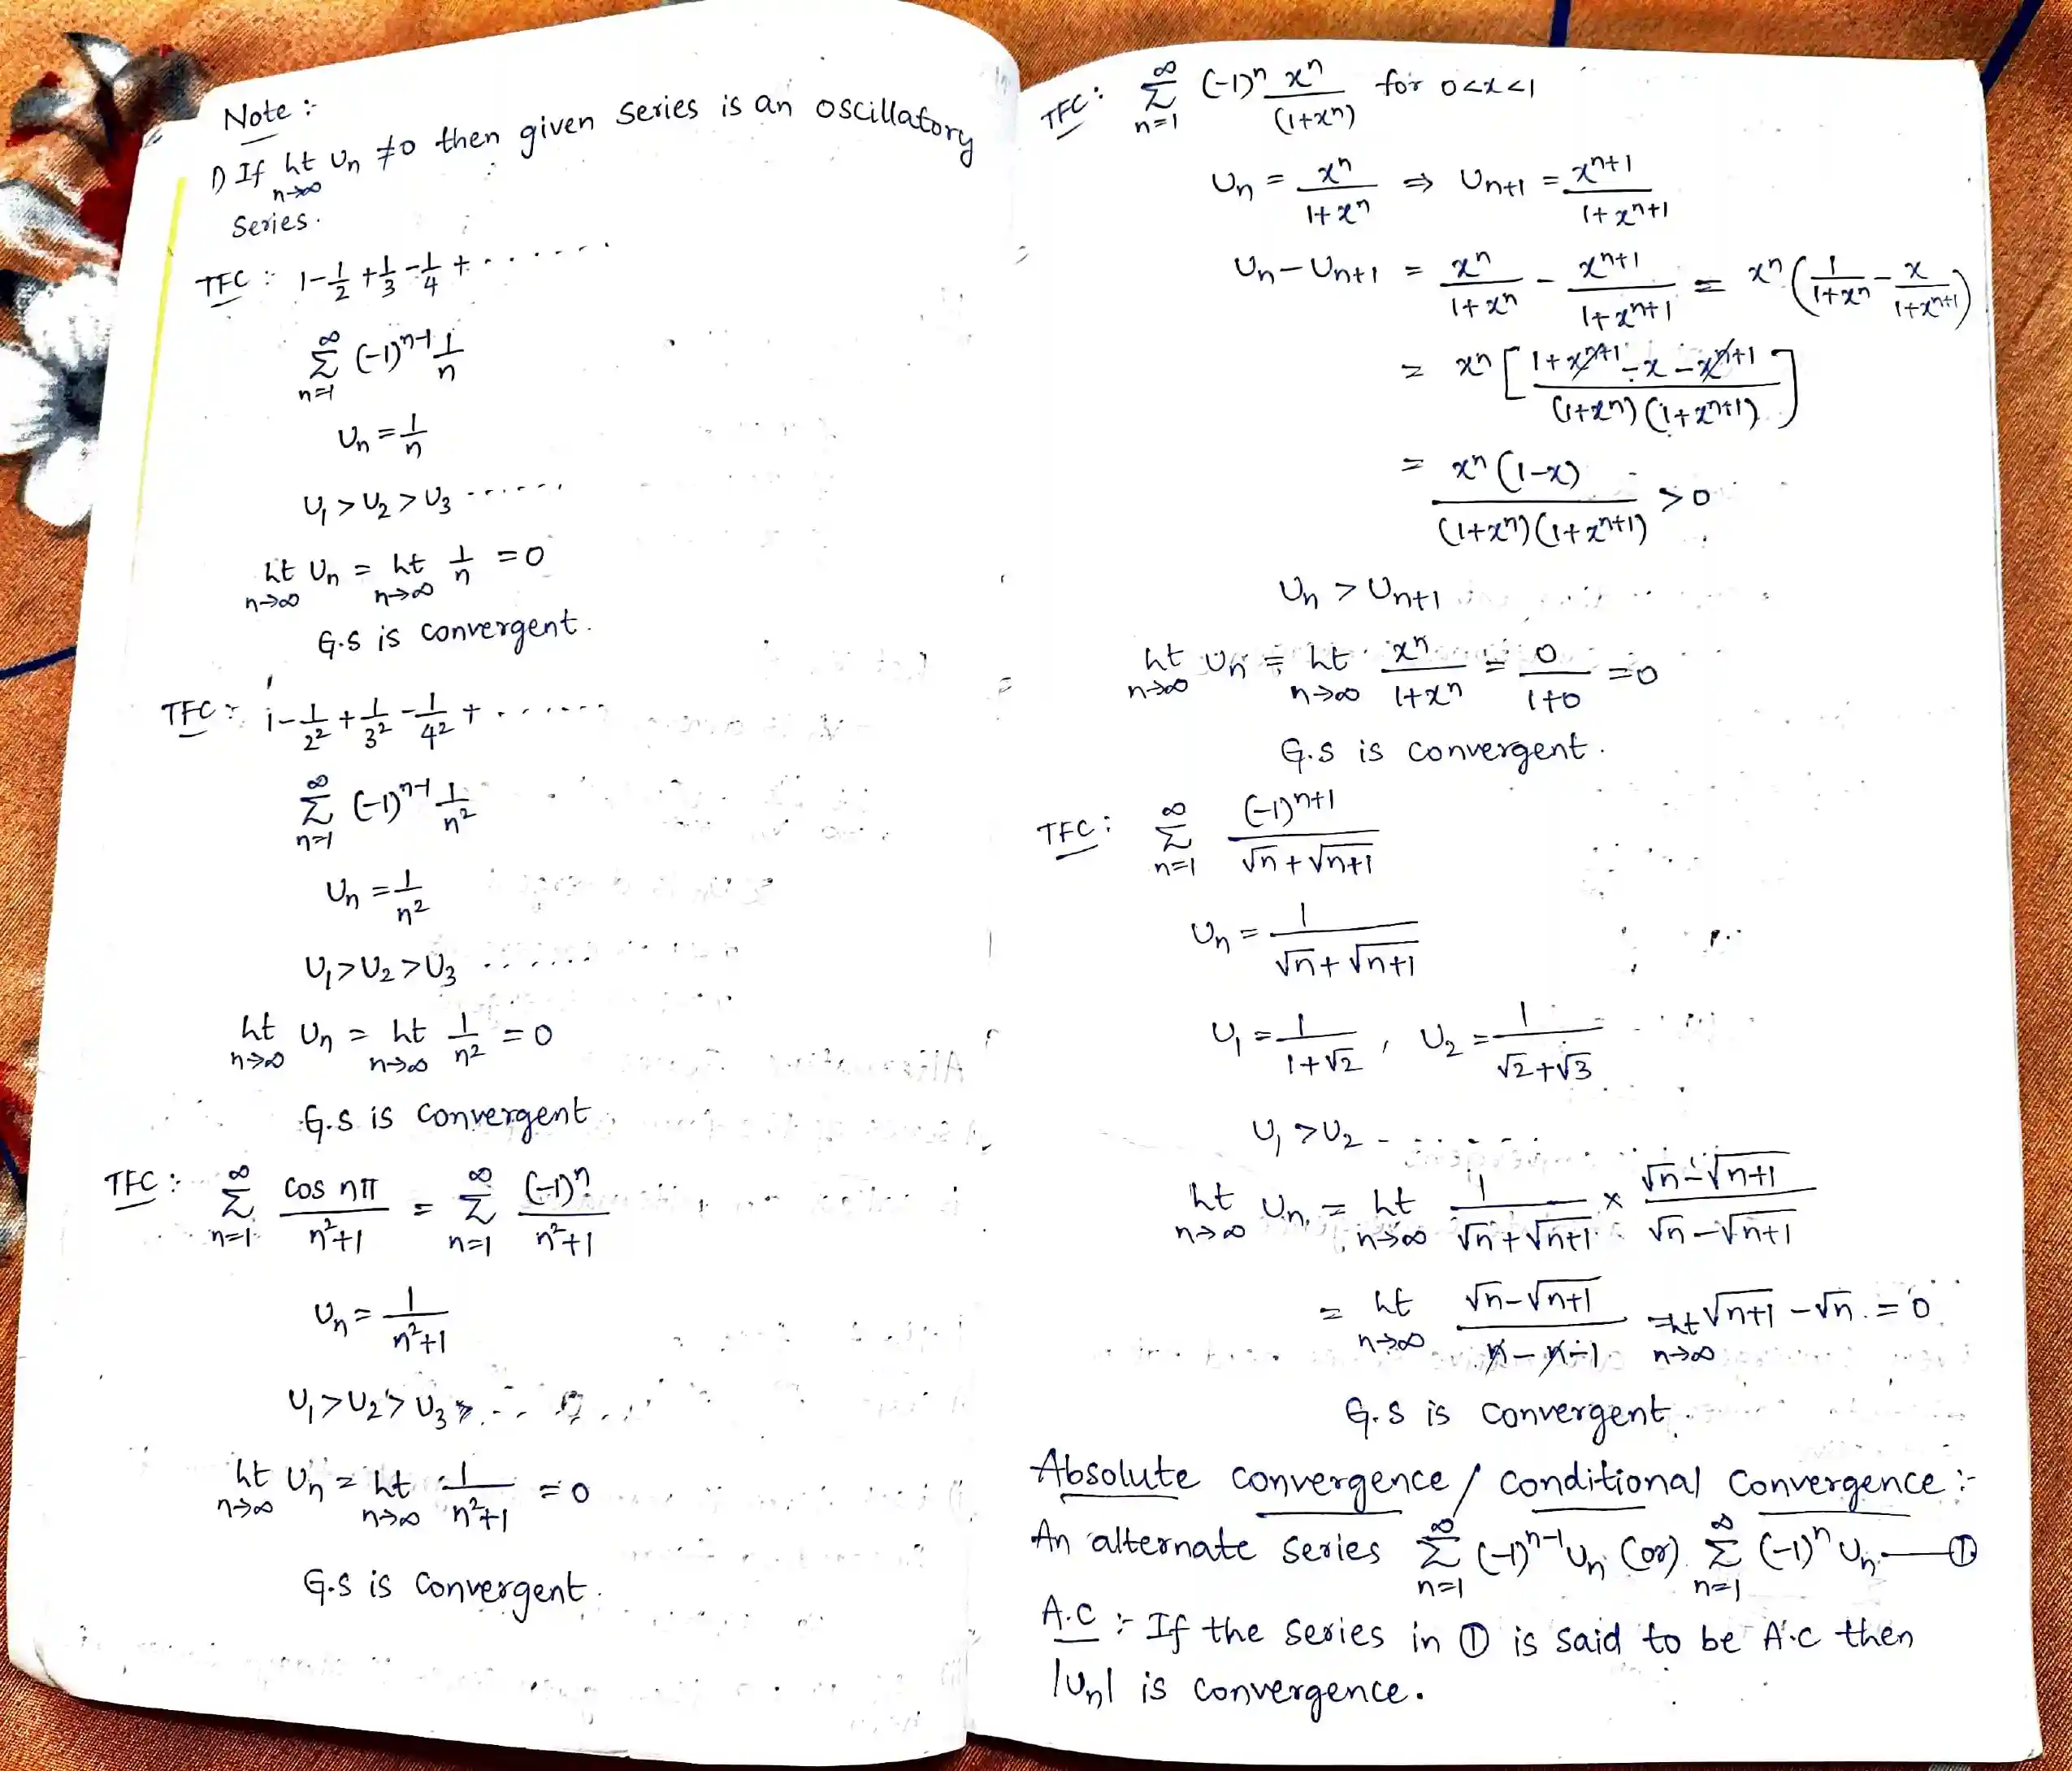 Note :-
1) If Lt n→∞ Un ≠0 then given series is an oscillatory
Series.
TFC :- 1-1/2+1/3-1/4+.......
∞∑n=1 (-1)^n-1 1/n
Un = 1/n
U1 > U2 > U3 .......
Lt n→∞ Un = Lt n→∞ 1/n = 0
G.S is convergent.
TFC :- 1-1/2²+1/3²-1/4²+.......
∞∑n=1 (-1)^n-1 1/n²
Un = 1/n²
U1>U2>U3 .......
Lt n→∞ Un = Lt n→∞ 1/n² = 0
G.S is convergent
TFC : ∞∑n=1 cos nπ/n²+1 = ∞∑n=1 (-1)^n/n²+1
Un = 1/n²+1
U1>U2>U3 >....
Lt n→∞ Un = Lt n→∞ 1/n²+1 = 0
G.S is convergent.
TFC : ∞∑n=1 (-1)^n x^n/(1+x^n) for 0<x<1
Un = x^n/1+x^n ⇒ Un+1 = x^n+1/1+x^n+1
Un-Un+1 = x^n/1+x^n - x^n+1/1+x^n+1 = x^n(1/1+x^n - x/1+x^n+1)
= x^n[1+x^n+1-x-x^n+1/(1+x^n)(1+x^n+1)]
= x^n(1-x)/(1+x^n)(1+x^n+1) >0
Un > Un+1
Lt n→∞ Un = Lt n→∞ x^n/1+x^n = 0/1+0 =0
G.S is convergent.
TFC : ∞∑n=1 (-1)^n+1/√n+√n+1
Un = 1/√n+√n+1
U1 = 1/1+√2 , U2 = 1/√2+√3
U1 >U2 - .......
Lt n→∞ Un = Lt n→∞ 1/√n+√n+1 × √n-√n+1/√n-√n+1
= Lt n→∞ √n-√n+1/n-n-1 = Lt n→∞ √n+1 -√n = 0
G.S is convergent.
Absolute convergence / conditional convergence :-
An alternate series ∞∑n=1 (-1)^n-1 Un (or) ∞∑n=1 (-1)^n Un —①
A.C :- If the series in ① is said to be A.C then
|Un| is convergence.